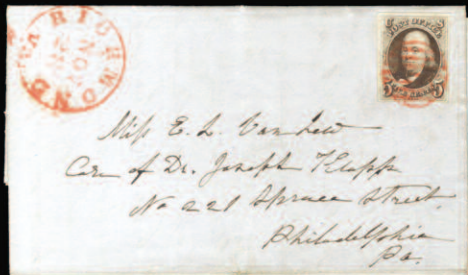 RICHMOND VA.
NOV
POST OFFICE
5 5
Miss E. L. Van Lew
Care of Dr. Joseph Klapp
No 221 Spruce Street
Philadelphia
Pa.